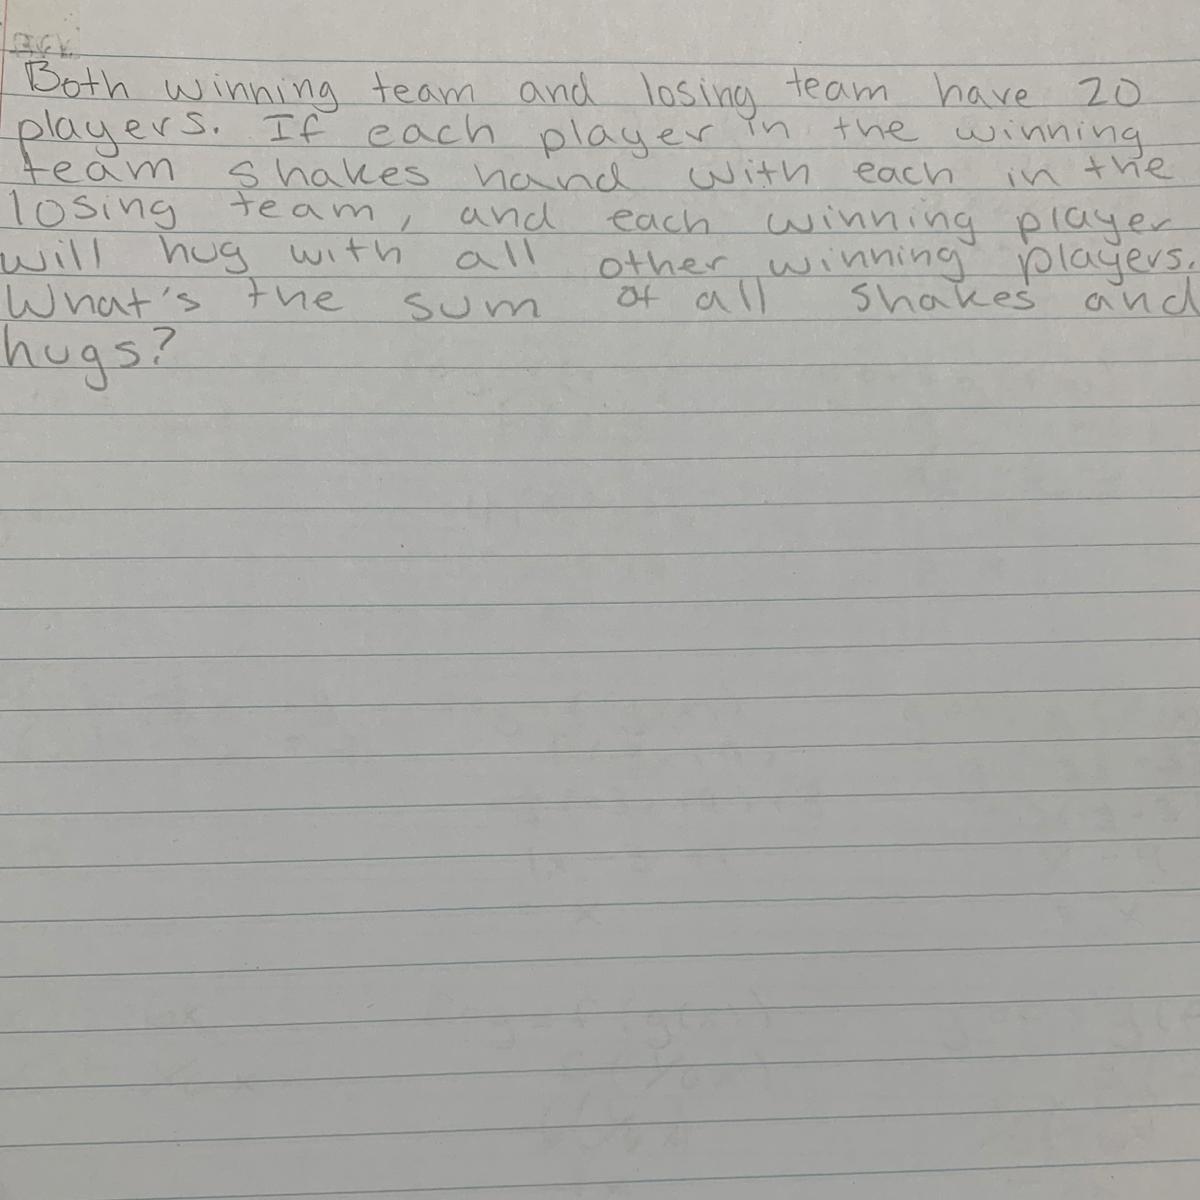 Both winning team and losing team have 20
players. If each player in the winning
team shakes hand with each in the
losing team, and each winning player
will hug with all other winning players.
What's the sum of all shakes and
hugs?